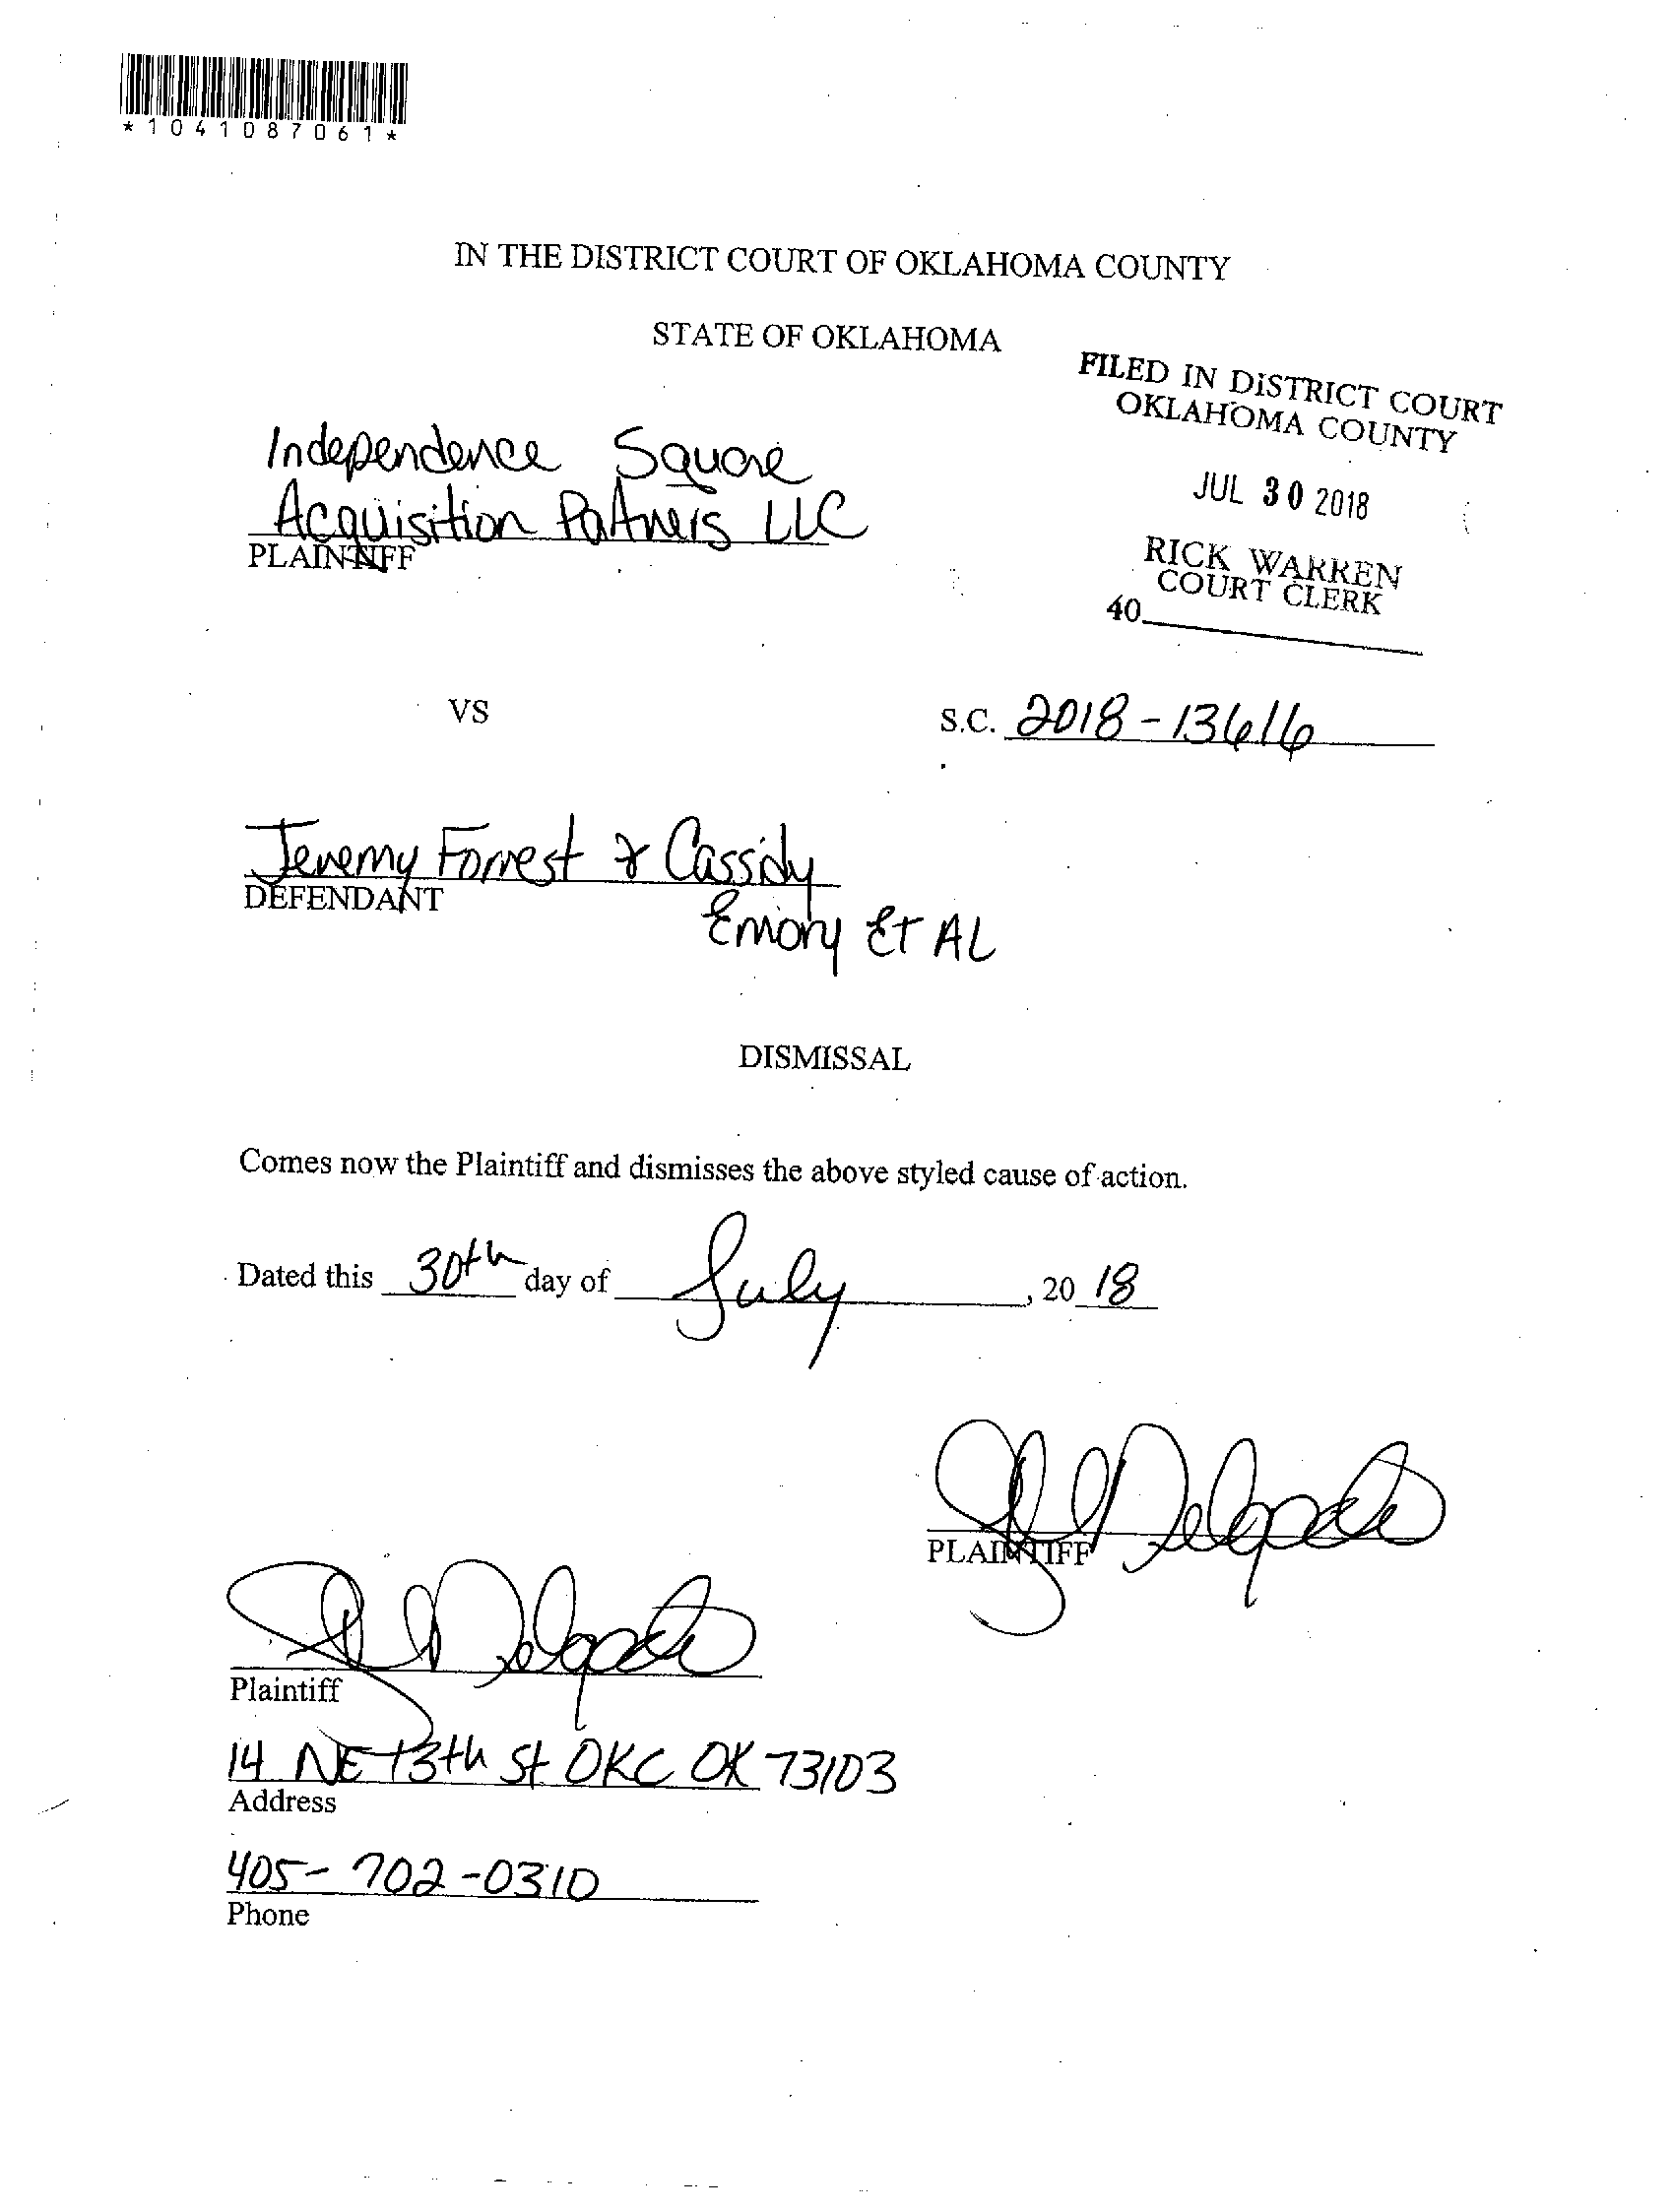 *1041087061*
IN THE DISTRICT COURT OF OKLAHOMA COUNTY
STATE OF OKLAHOMA
FILED IN DISTRICT COURT
OKLAHOMA COUNTY
JUL 30 2018
RICK WARREN
COURT CLERK
40
Independence Square
Acquisition Partners LLC
PLAINTIFF
VS
S.C. 2018-13616
Jeremy Forrest & Cassidy
DEFENDANT
Emory Et AL
DISMISSAL
Comes now the Plaintiff and dismisses the above styled cause of action.
Dated this 30th day of July, 20 18
Delgado
PLAINTIFF
Delgado
Plaintiff
14 NE 13th St OKC OK 73103
Address
405-702-0310
Phone